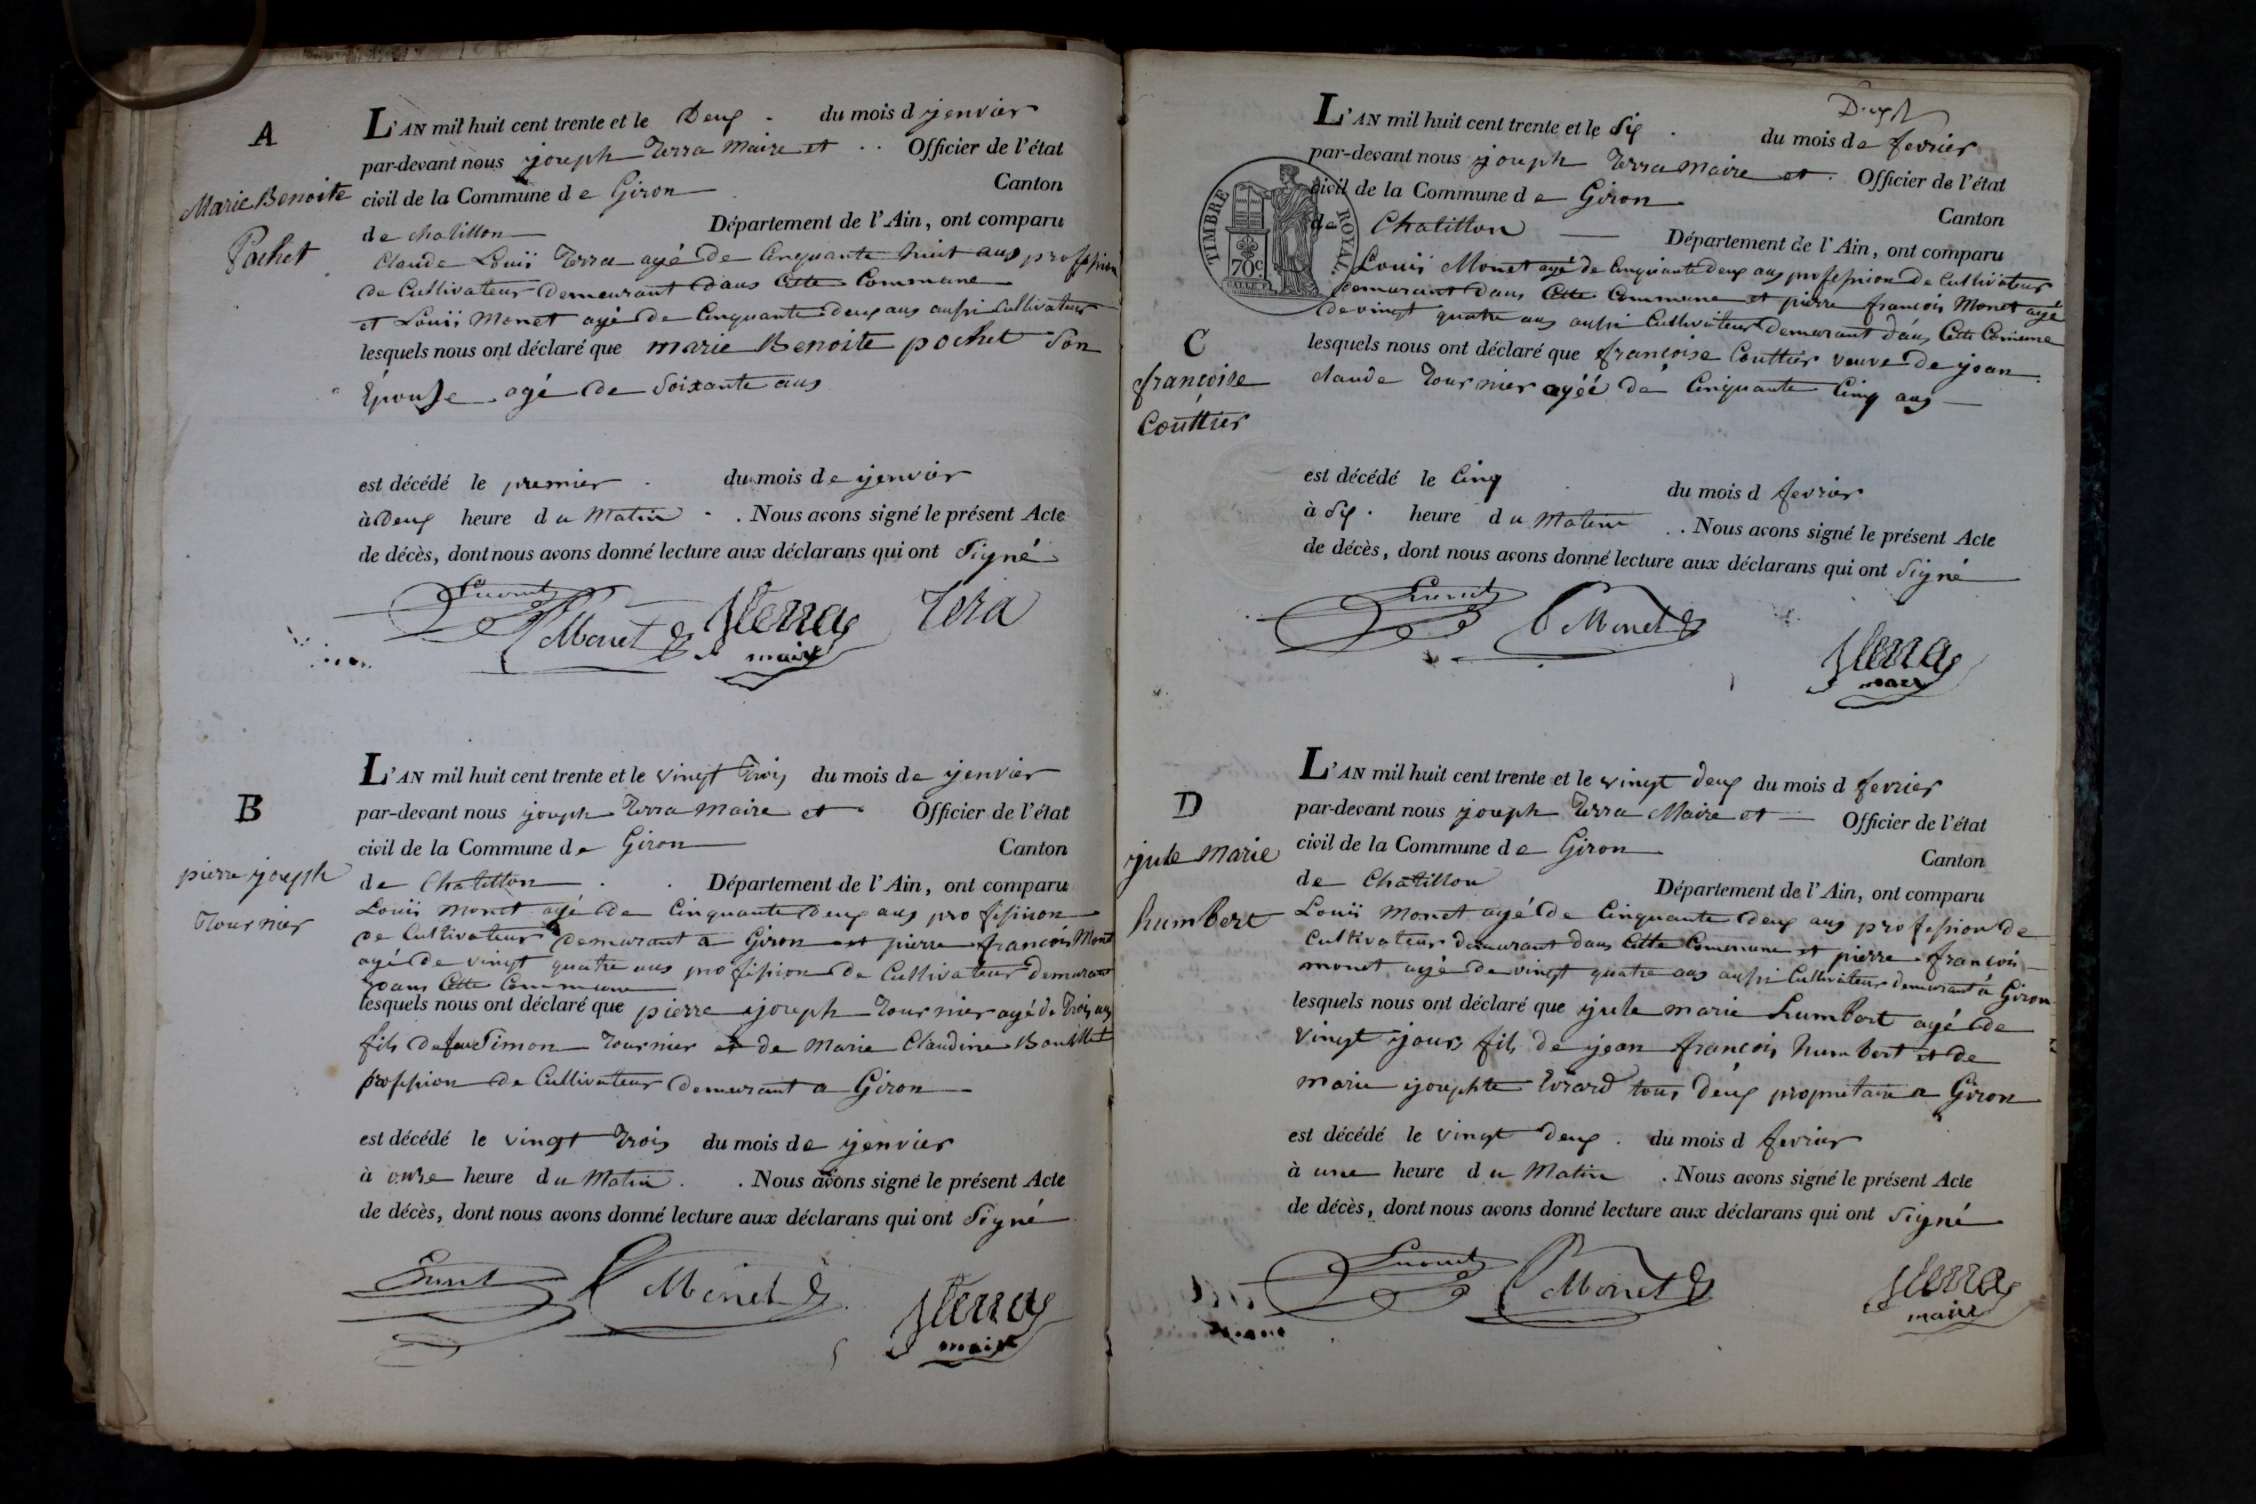 A
Marie Benoite
Pochet
L'AN mil huit cent trente et le Deux du mois d jenvier
par-devant nous joseph Terra Maire et Officier de l'état
civil de la Commune de Giron Canton
de chatillon Département de l'Ain, ont comparu
Claude Louïs Terra agé de Cinquante huit ans profession
de Cultivateur Demeurant dans Cette Commune
et Louïs Monet agé de Cinquante deux ans aussi Cultivateur
lesquels nous ont déclaré que marie Benoite pochet Son
Epouse agé de Soixante ans
est décédé le premier du mois de jenvier
à Deux heure du Matin . Nous avons signé le présent Acte
de décès, dont nous avons donné lecture aux déclarans qui ont Signé
Monet Jterra Tera
maire
B
pierre joseph
Tournier
L'AN mil huit cent trente et le vingt Trois du mois de jenvier
par-devant nous joseph Terra Maire et Officier de l'état
civil de la Commune de Giron Canton
de Chatillon Département de l'Ain, ont comparu
Louïs Monet agé de Cinquante Deux ans profission
de Cultivateur Demurant a Giron et pierre françois Monet
agé de vingt quatre ans profission de Cultivateur Demurant
Dans Cette Commune
lesquels nous ont déclaré que pierre joseph Tournier agé de Trois ans
fils de feu Simon Tournier et de Marie Claudine
profission de Cultivateur Demurant a Giron
est décédé le vingt Trois du mois de jenvier
à onze heure du Matin . Nous avons signé le présent Acte
de décès, dont nous avons donné lecture aux déclarans qui ont Signé
Monet Jterra
maire
L'AN mil huit cent trente et le Six du mois de fevrier
par-devant nous joseph Terra Maire et Officier de l'état
civil de la Commune de Giron Canton
de Chatillon Département de l'Ain, ont comparu
TIMBRE ROYAL
70c
Louïs Monet agé de Cinquante deux ans profession de Cultivateur
demurant dans Cette Commune et pierre françois Monet agé
de vingt quatre ans aussi Cultivateur Demurant dans Cette Comune
C
françoise
Couttier
lesquels nous ont déclaré que françoise Couttier veuve de jean
claude Tournier agéé de Cinquante Cinq ans
est décédé le Cinq du mois d fevrier
à Six heure du Matin . Nous avons signé le présent Acte
de décès, dont nous avons donné lecture aux déclarans qui ont Signé
Monet Jterra
maire
D
jule marie
humbert
L'AN mil huit cent trente et le vingt deux du mois d fevrier
par-devant nous joseph Terra Maire et Officier de l'état
civil de la Commune de Giron Canton
de Chatillon Département de l'Ain, ont comparu
Louïs Monet agé de Cinquante deux ans profession de
Cultivateur demurant dans Cette Commune et pierre françois
monet agé de vingt quatre ans aussi Cultivateur demurant à Giron
lesquels nous ont déclaré que jule marie humbert agé de
vingt jours fils de jean françois humbert et de
marie josephte Evrard tous deux propriétaire a Giron
est décédé le vingt deux du mois d fevrier
à une heure du Matin . Nous avons signé le présent Acte
de décès, dont nous avons donné lecture aux déclarans qui ont Signé
Monet Jterra
maire